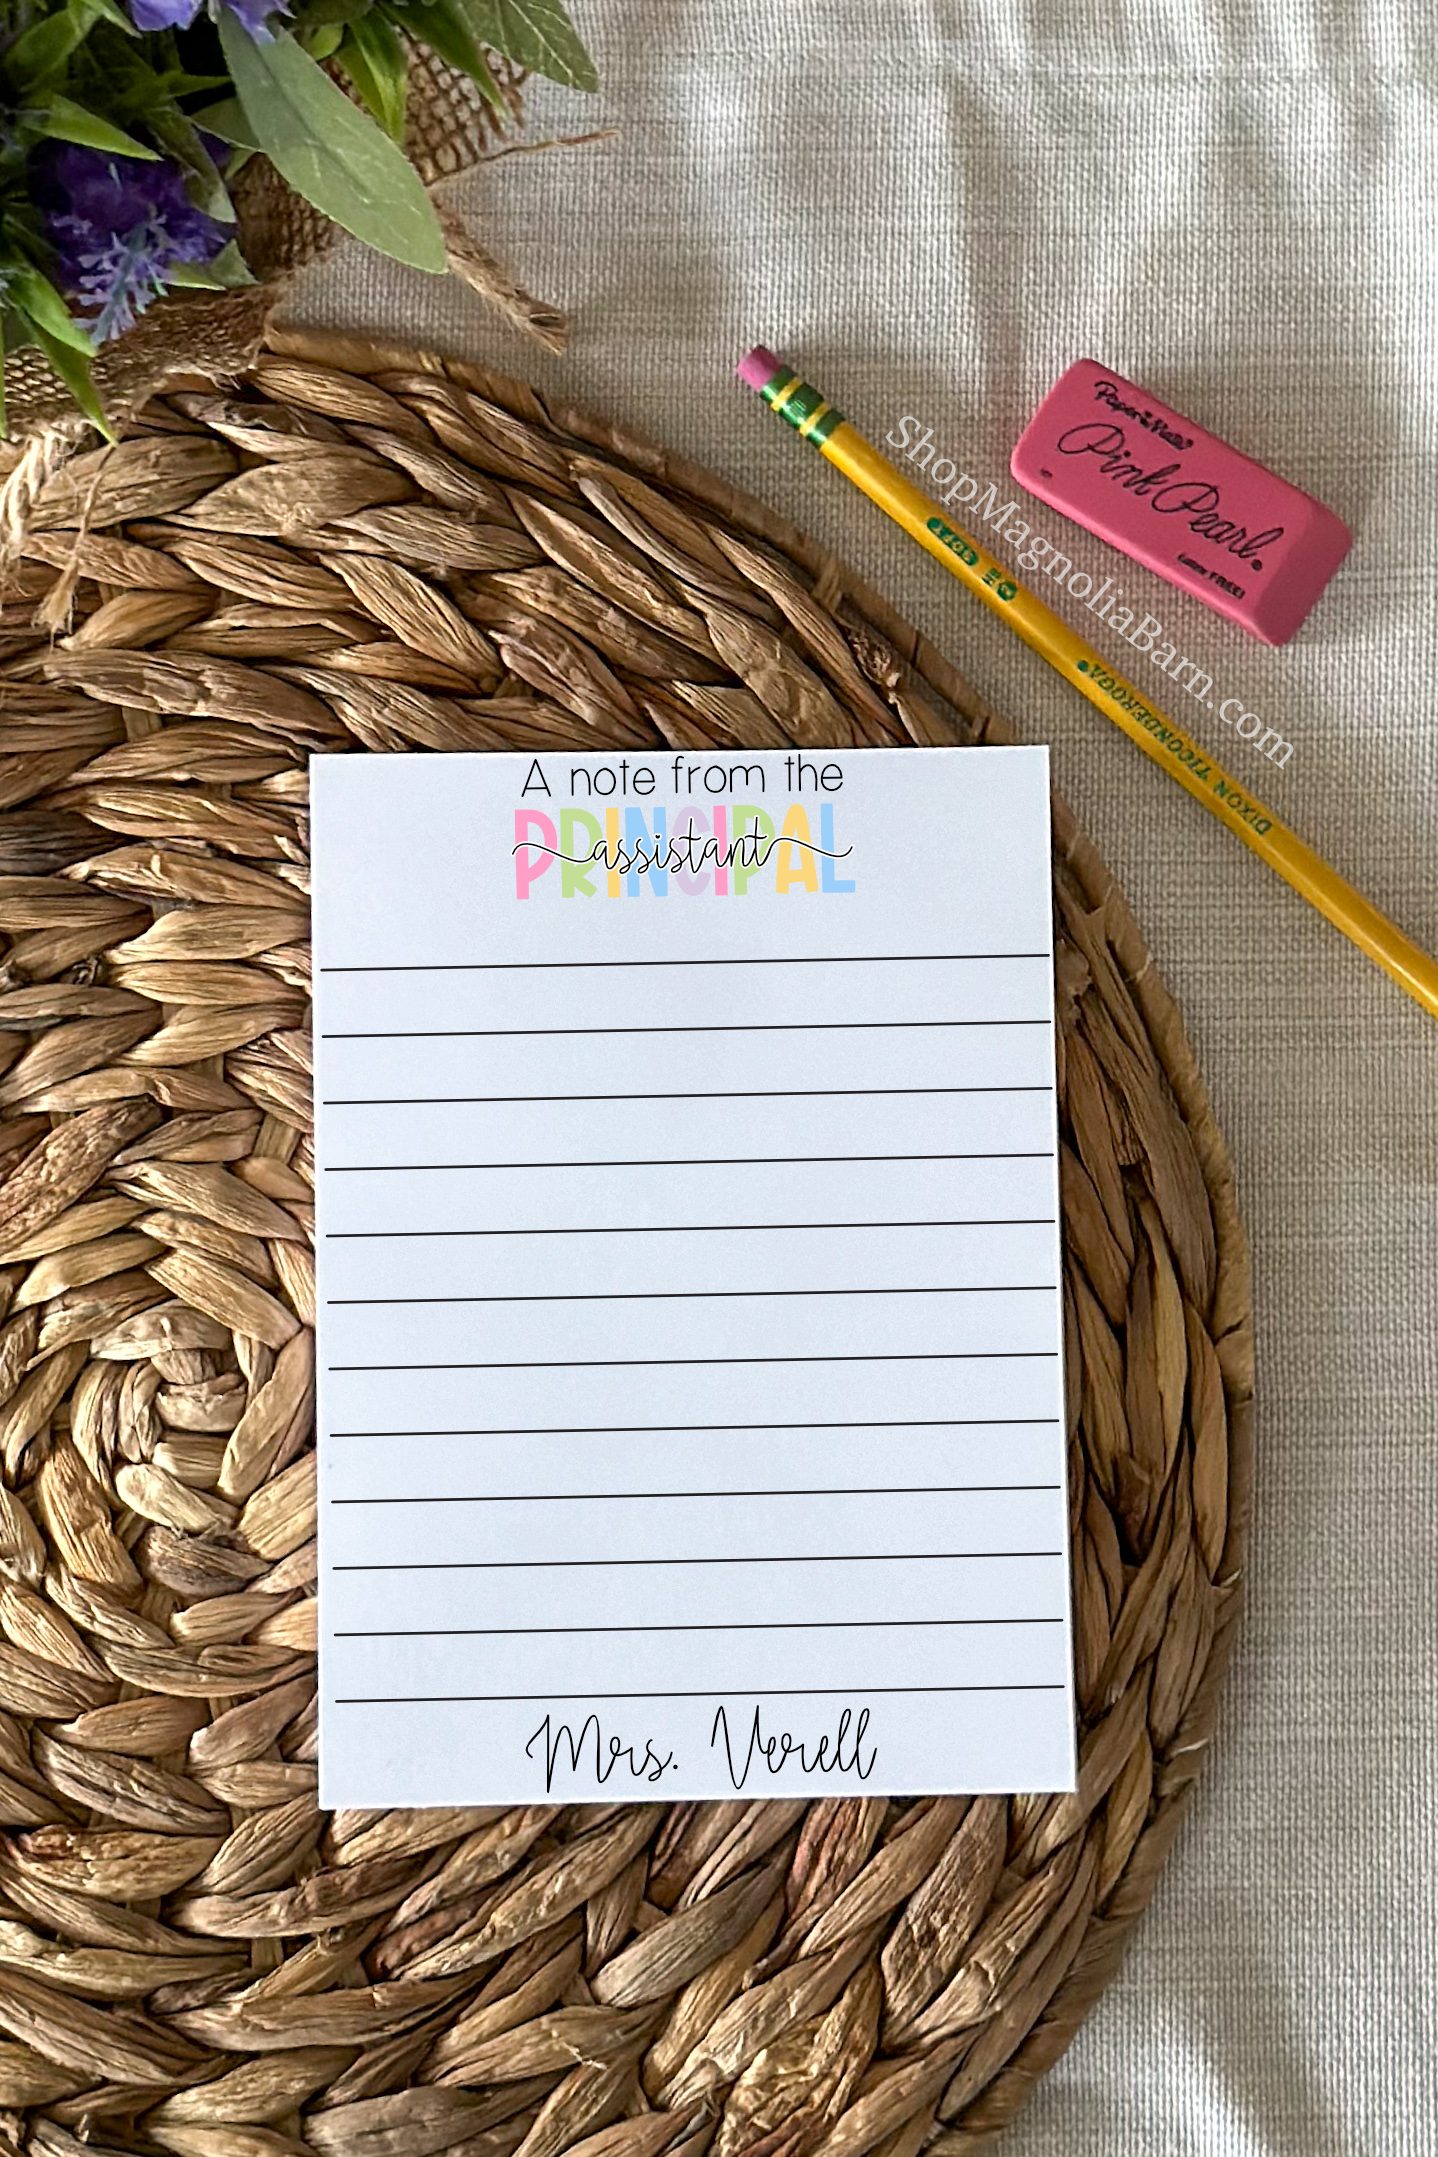 Paper Mate®
Pink Pearl®
Latex FREE!
ShopMagnoliaBarn.com
DIXON TICONDEROGA®
A note from the
PRINCIPAL
assistant
Mrs. Verell